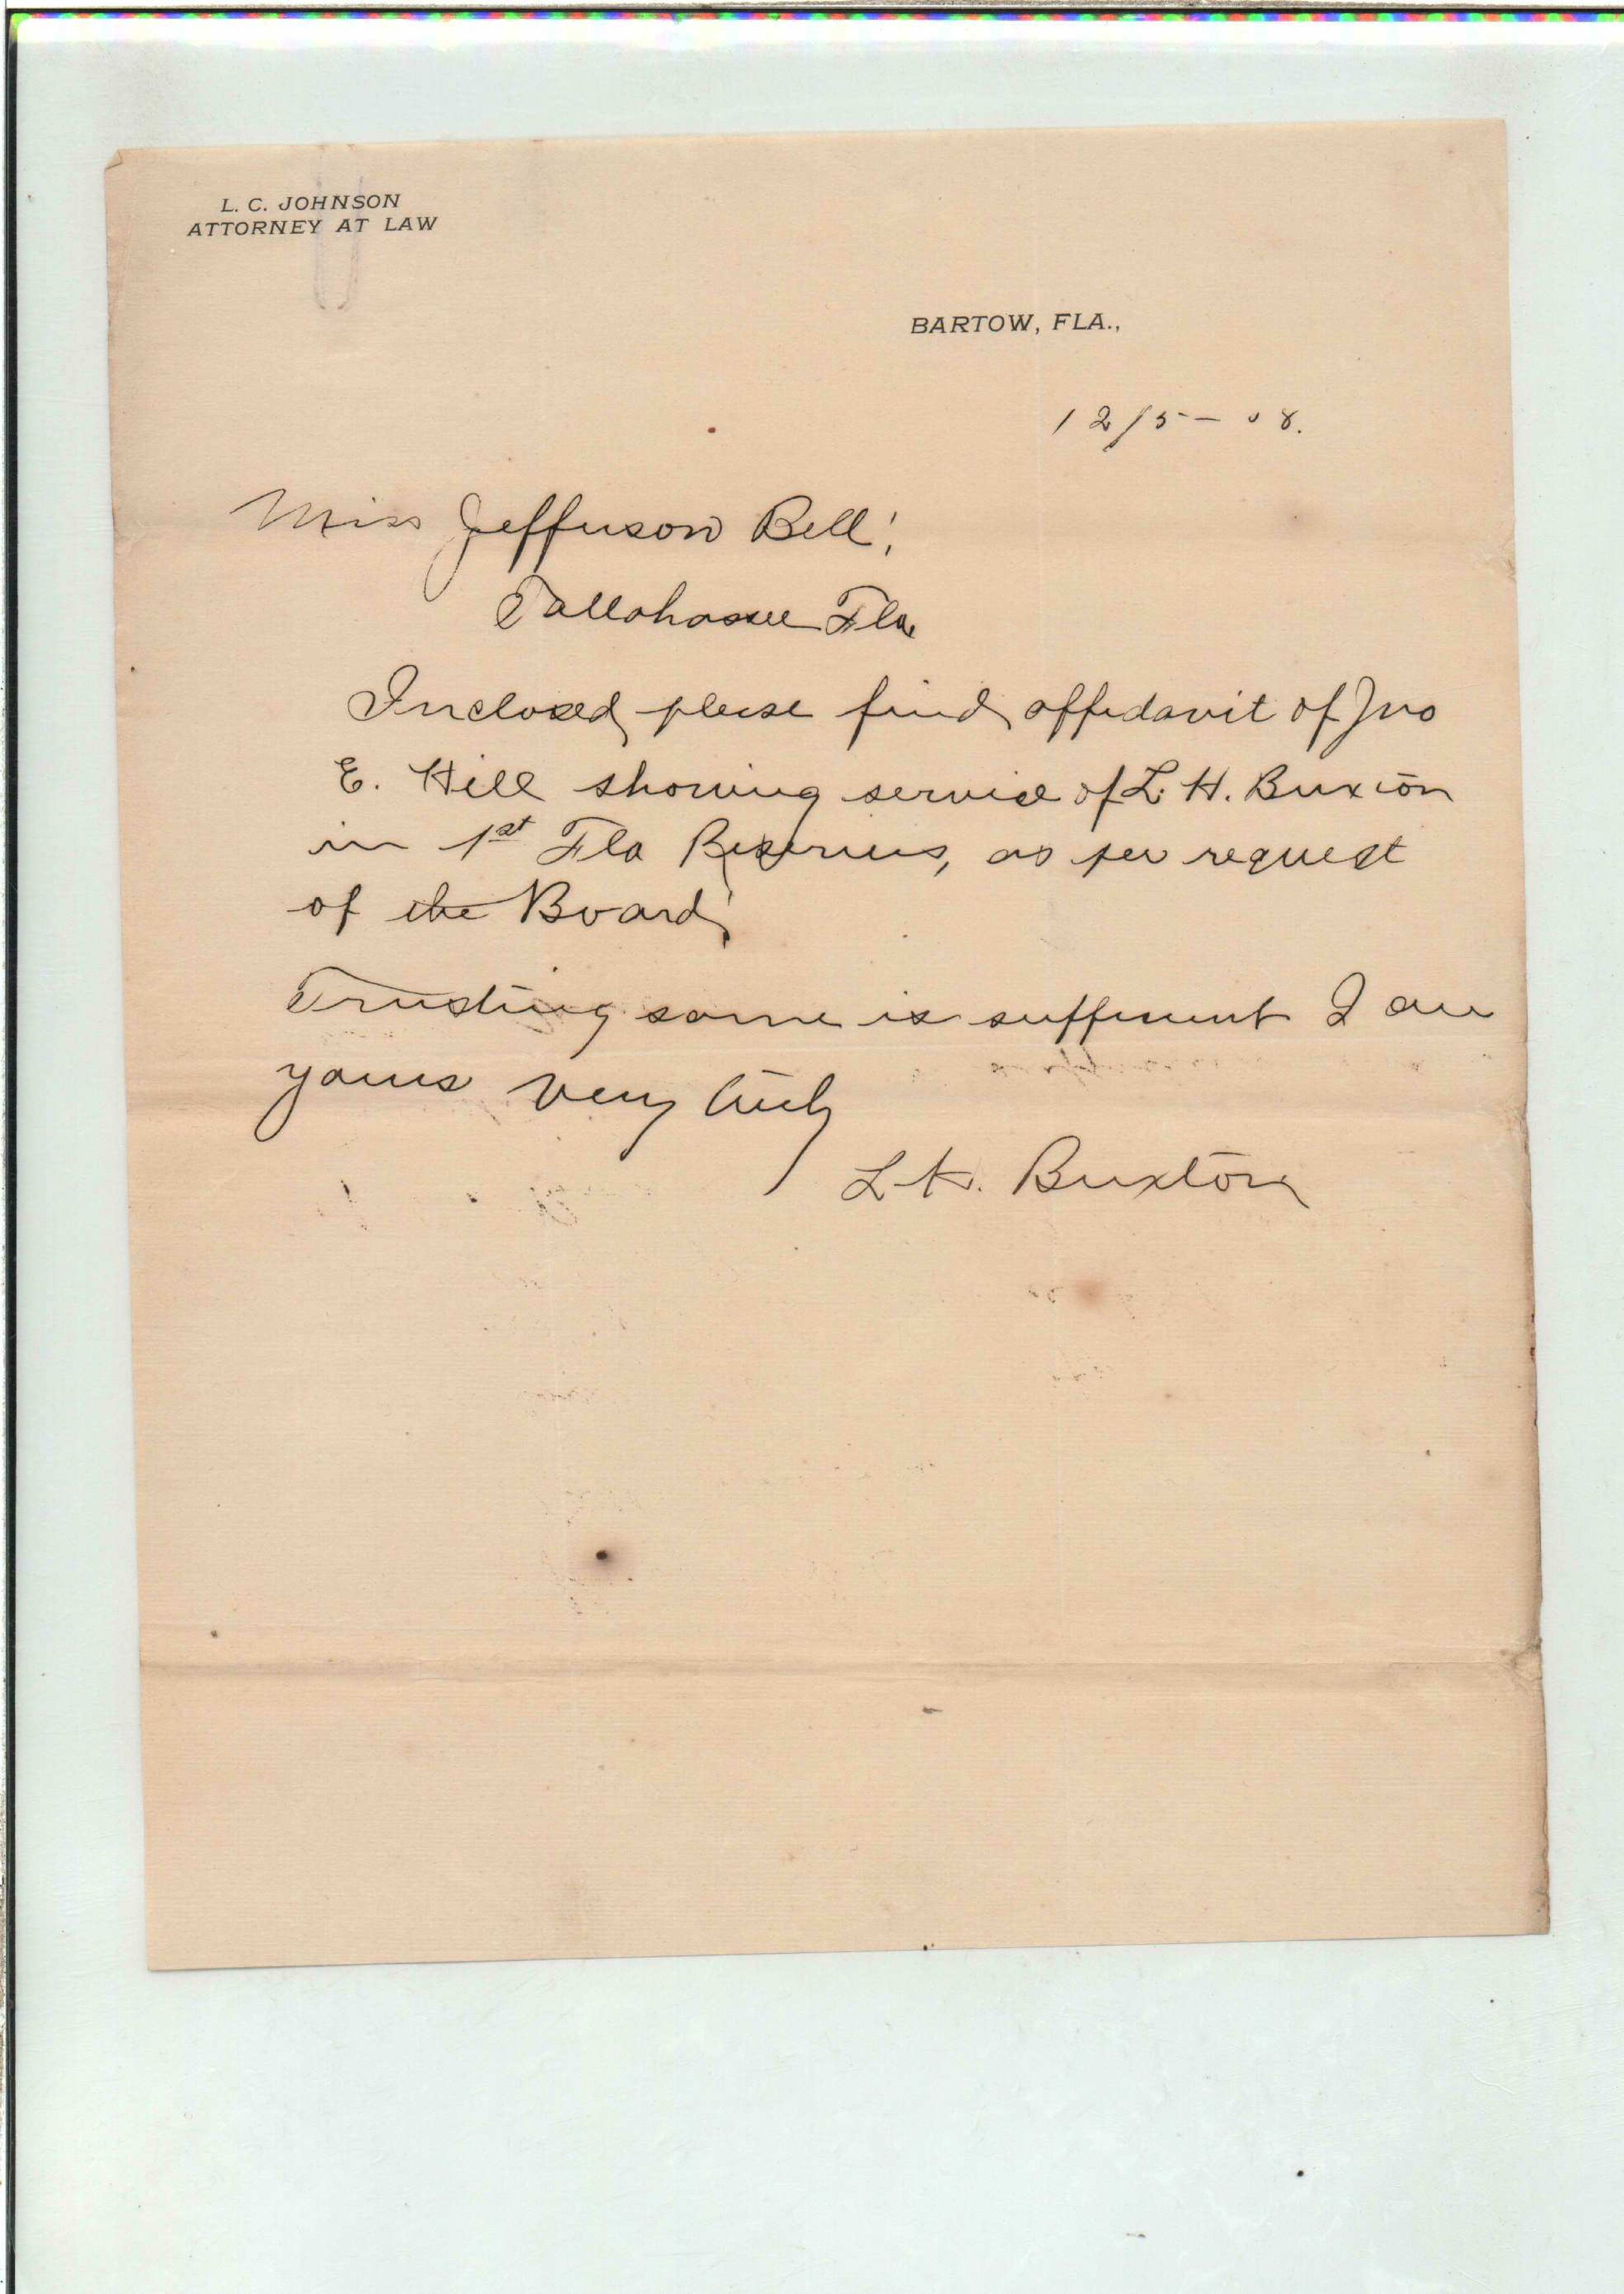 L. C. JOHNSON
ATTORNEY AT LAW
BARTOW, FLA.,
12/5 - 08.
Miss Jefferson Bell,
Tallahassee Fla
Inclosed please find affidavit of Jno
E. Hill showing service of L. H. Buxton
in 1st Fla Reserves, as per request
of the Board,
Trusting same is sufficient I am
yours very truly
L H. Buxton